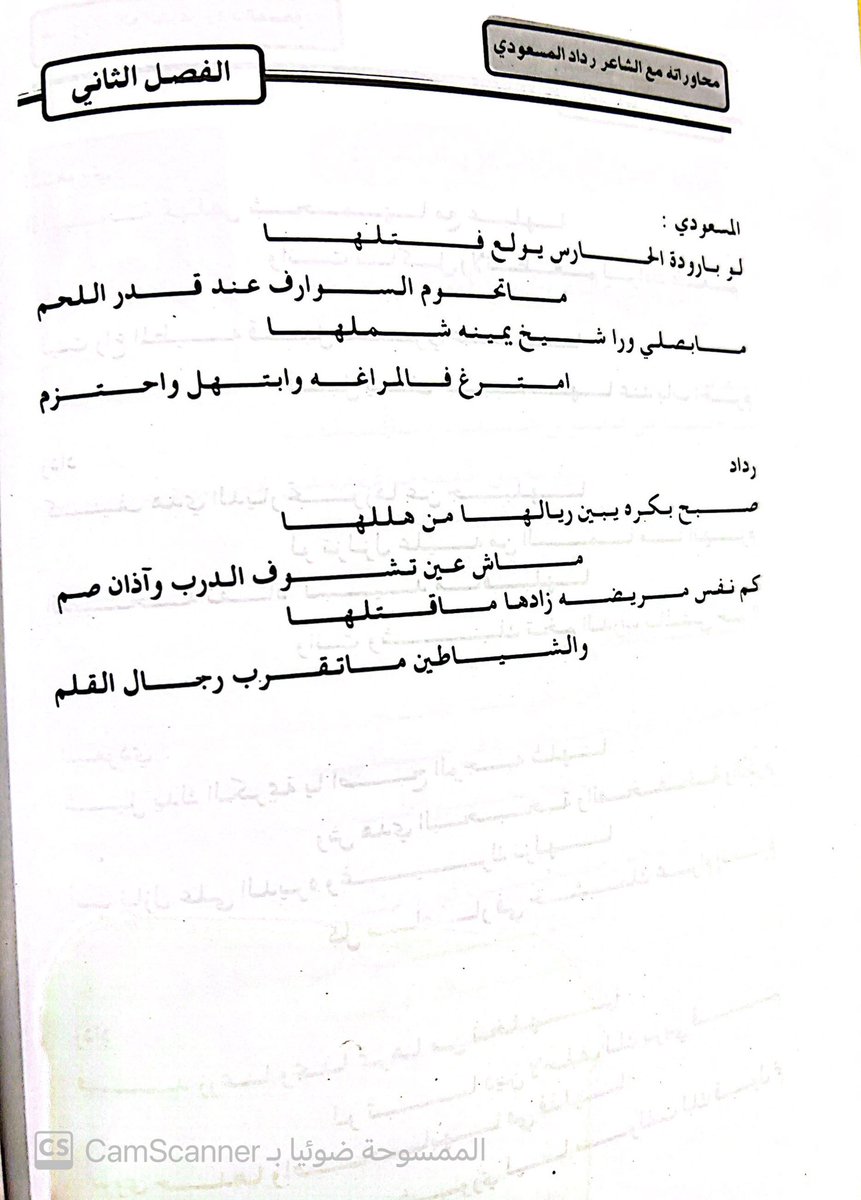 محاوراته مع الشاعر رداد المسعودي
الفصل الثاني
المسعودي :
لو بارودة الحارس يولع فتلها
ماتحوم السوارف عند قدر اللحم
مابصلي ورا شيخ يمينه شملها
امترغ فالمراغه وابتهل واحتزم
رداد
صبح بكره يبين ريالها من هللها
ماش عين تشوف الدرب وآذان صم
كم نفس مريضه زادها ماقتلها
والشياطين ماتقرب رجال القلم
CS CamScanner الممسوحة ضوئيا بـ